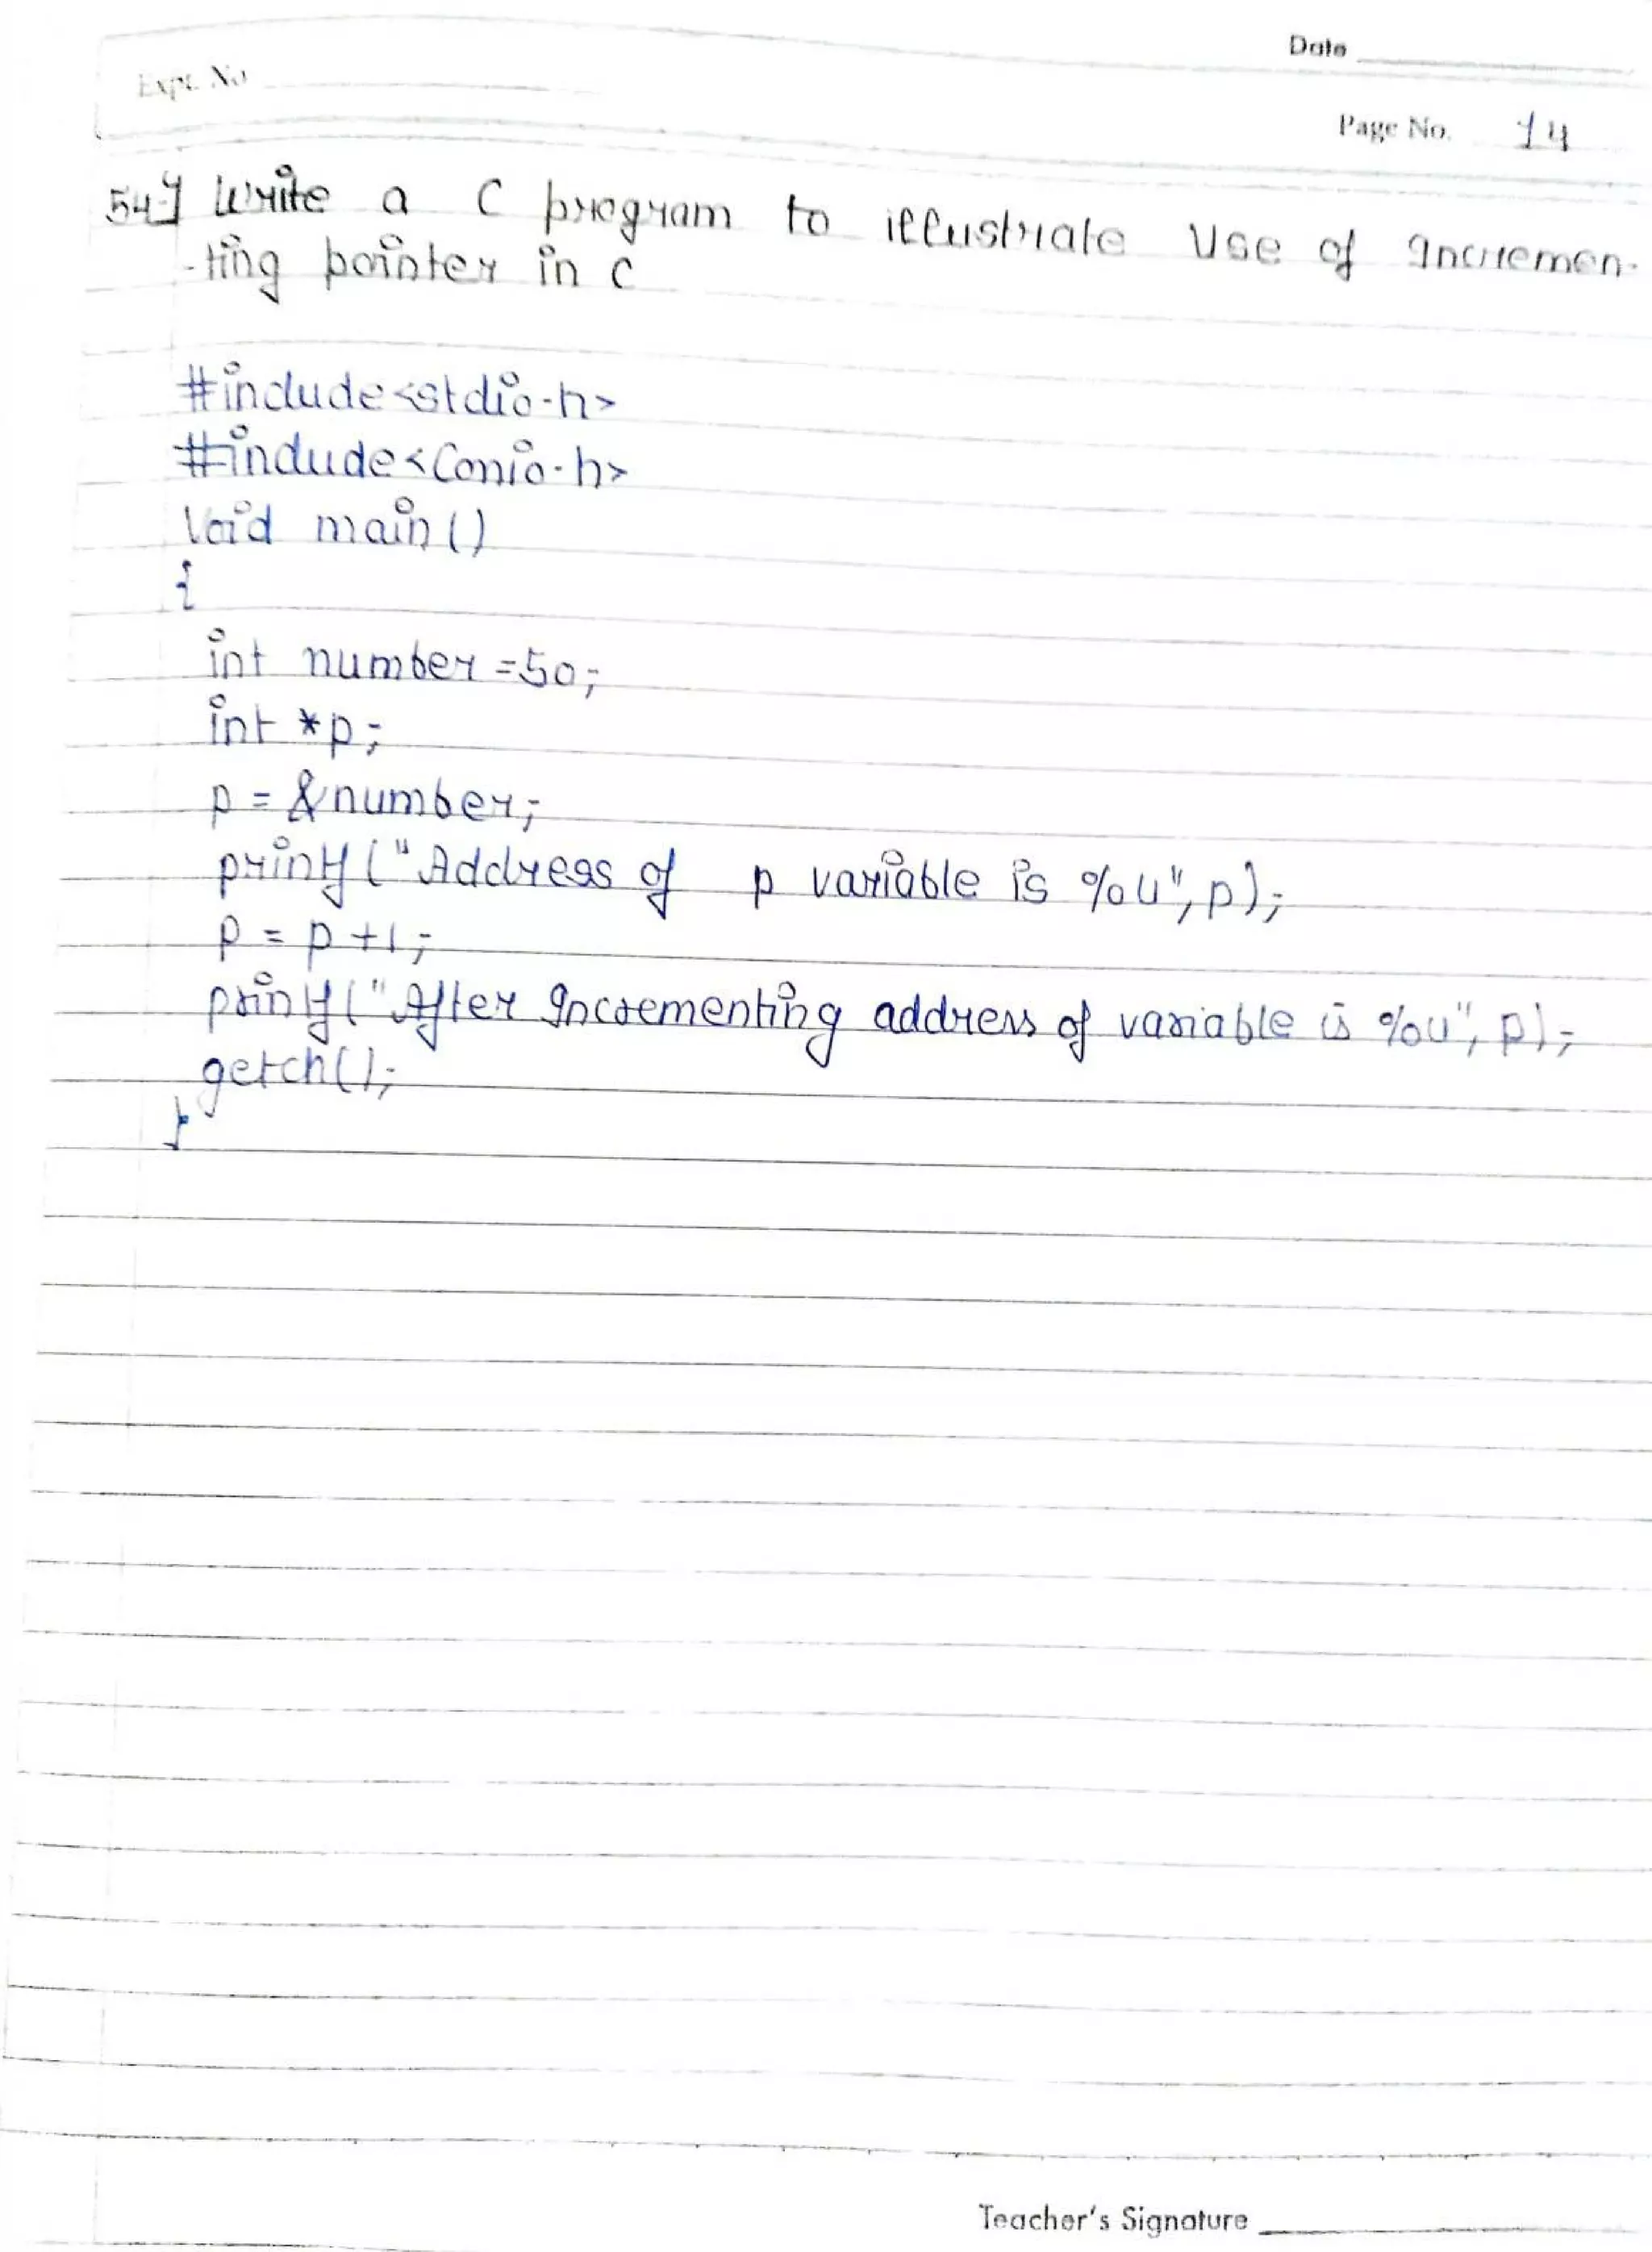 Date
Expt. No
Page No. 14
54] Write a C program to illustrate Use of Incremen-
-ting pointer in C
#include<stdio.h>
#include<Conio.h>
Void main()
{
int number =50;
int *p;
p = &number;
printf("Address of p variable is %u",p);
p = p +1;
printf("After Incrementing address of variable is %u", p);
getch();
}
Teacher's Signature